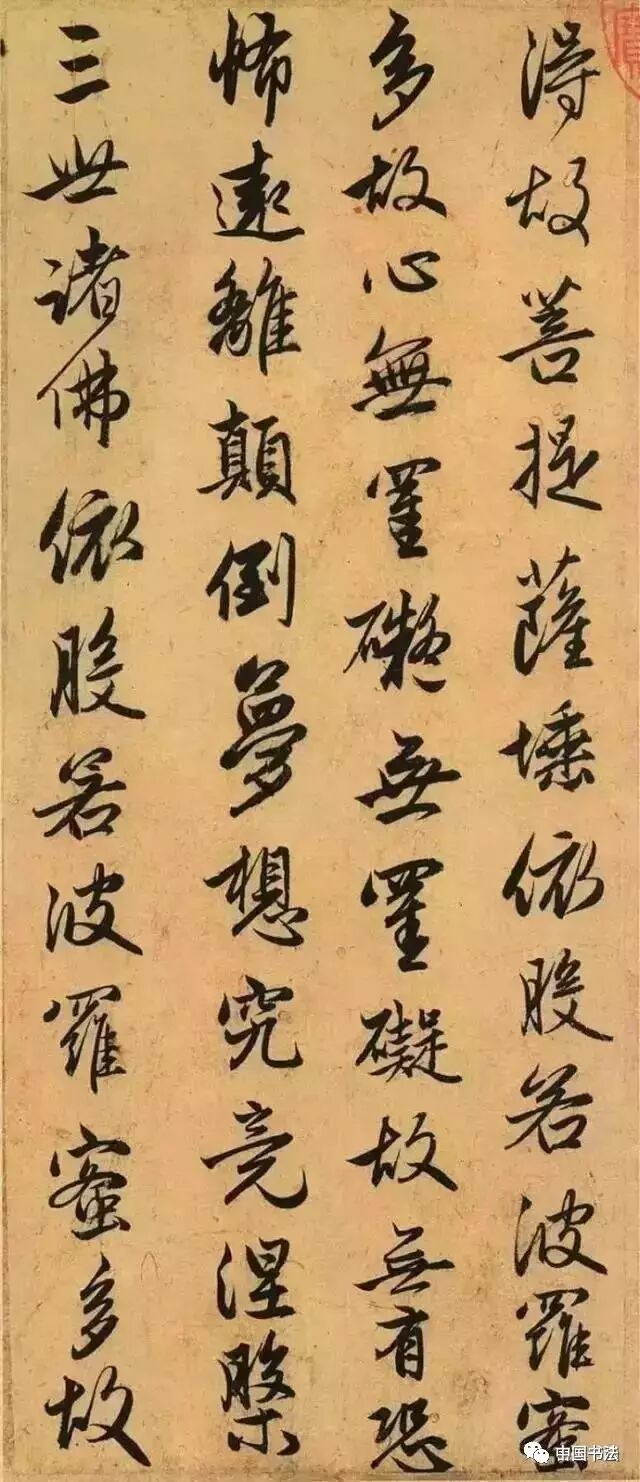 得故菩提薩埵依般若波羅蜜
多故心無罣礙無罣礙故無有恐
怖遠離顛倒夢想究竟涅槃
三世諸佛依般若波羅蜜多故
中国书法